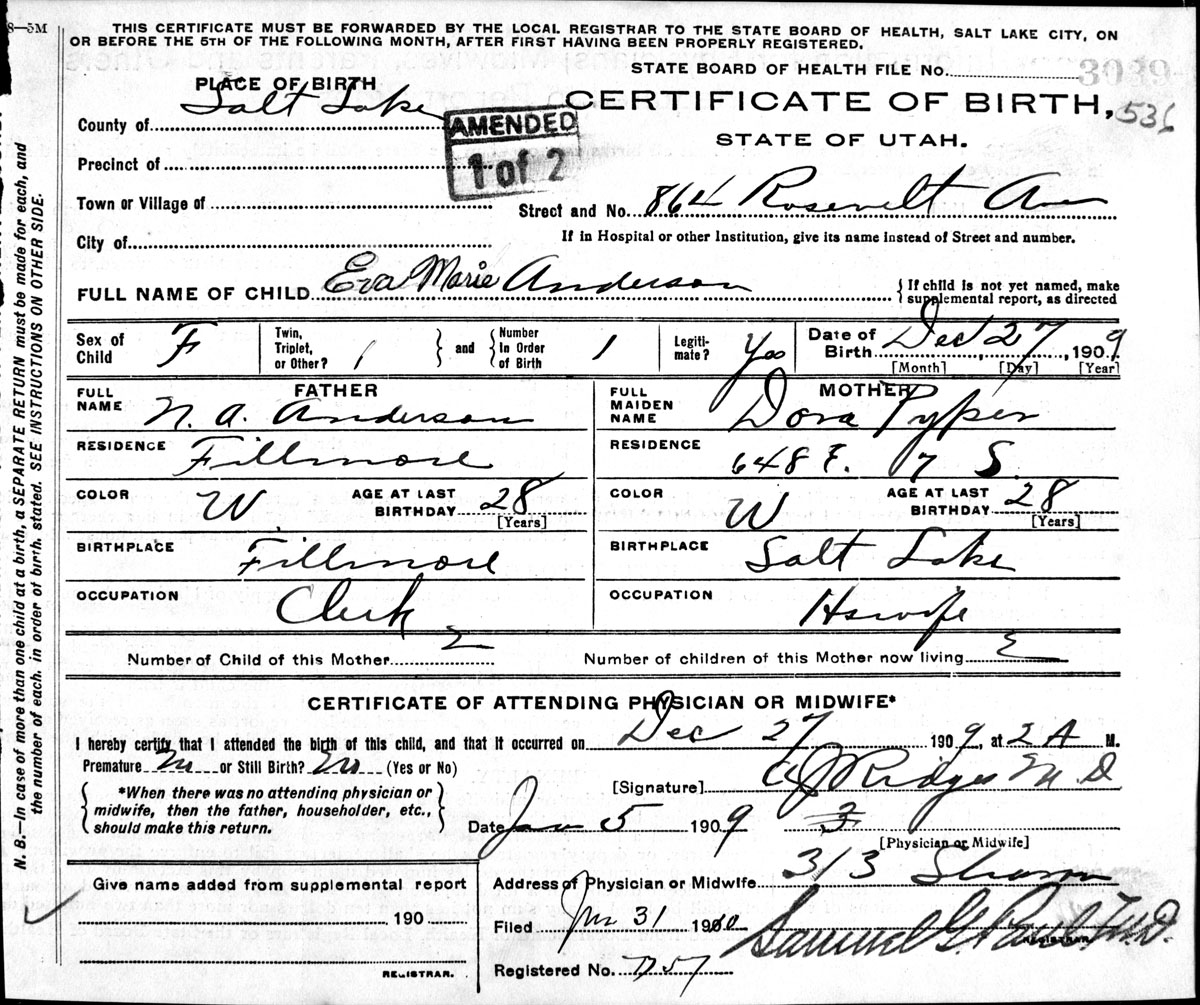 8—5M
THIS CERTIFICATE MUST BE FORWARDED BY THE LOCAL REGISTRAR TO THE STATE BOARD OF HEALTH, SALT LAKE CITY, ON
OR BEFORE THE 5TH OF THE FOLLOWING MONTH, AFTER FIRST HAVING BEEN PROPERLY REGISTERED.
STATE BOARD OF HEALTH FILE No. 3039
PLACE OF BIRTH
CERTIFICATE OF BIRTH, 536
STATE OF UTAH.
County of Salt Lake
AMENDED
1 of 2
Precinct of
Town or Village of
Street and No. 864 Rosevelt Ave
City of
If in Hospital or other Institution, give its name instead of Street and number.
FULL NAME OF CHILD Eva Marie Anderson
If child is not yet named, make
supplemental report, as directed
Sex of Child F
Twin, Triplet, or Other? 1
and
Number In Order of Birth 1
Legiti-mate? Yes
Date of Birth Dec 27, 1909
[Month] [Day] [Year]
FATHER
FULL NAME N. A. Anderson
MOTHER
FULL MAIDEN NAME Dora Pyper
RESIDENCE Fillmore
RESIDENCE 648 E. 7 S.
COLOR W
AGE AT LAST BIRTHDAY 28
[Years]
COLOR W
AGE AT LAST BIRTHDAY 28
[Years]
BIRTHPLACE Fillmore
BIRTHPLACE Salt Lake
OCCUPATION Clerk
OCCUPATION Hswife
Number of Child of this Mother 2
Number of children of this Mother now living 2
CERTIFICATE OF ATTENDING PHYSICIAN OR MIDWIFE*
I hereby certify that I attended the birth of this child, and that it occurred on Dec 27 1909, at 2 A M.
Premature No or Still Birth? No (Yes or No)
[Signature] Ridges M D
*When there was no attending physician or
midwife, then the father, householder, etc.,
should make this return.
Date Jan 5 1909 3
[Physician or Midwife]
Give name added from supplemental report
Address of Physician or Midwife 313
190
Filed Jan 31 1910 Samuel G. Paul M.D.
REGISTRAR.
REGISTRAR.
Registered No.
N. B.—In case of more than one child at a birth, a SEPARATE RETURN must be made for each, and
the number of each, in order of birth, stated. SEE INSTRUCTIONS ON OTHER SIDE.